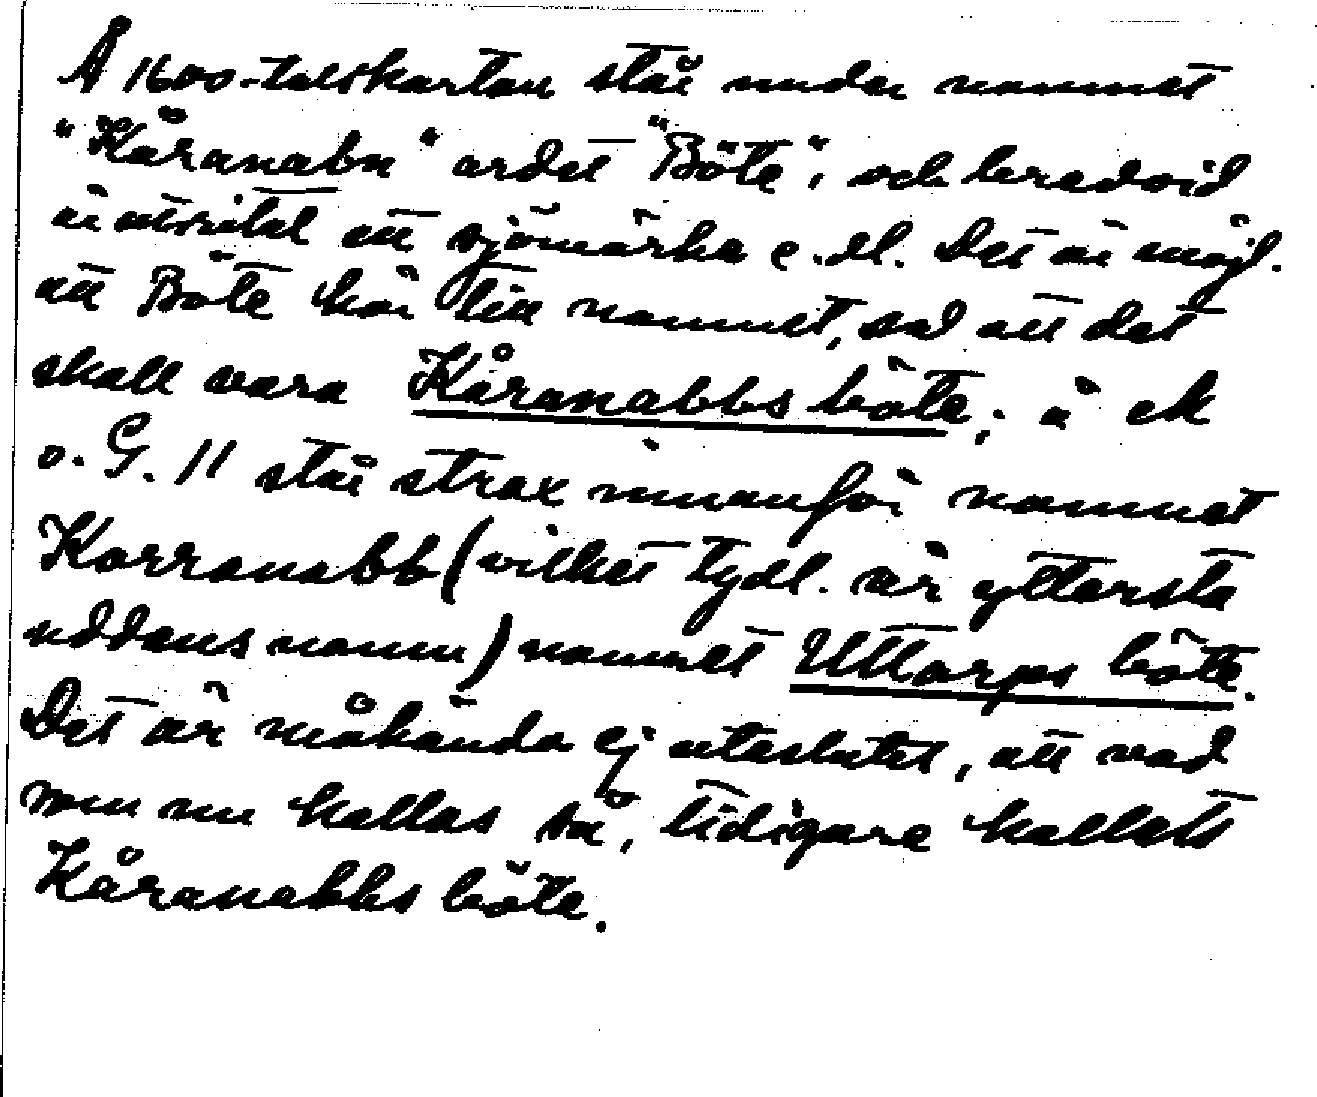 Å 1600-talskartan står under namnet
"Kåranabn" ordet "Böte", och bredvid
är utritat ett sjömärke e.dl. Det är möjl.
att Böte hör till namnet, så att det
skall vara Kåranabbs böte; å ek
o. G. 11 står strax innanför namnet
Korranabb (vilket tydl. är yttersta
uddens namn) namnet Ullarps böte.
Det är måhända ej uteslutet, att vad
som nu kallas så, tidigare kallats
Kåranabbs böte.